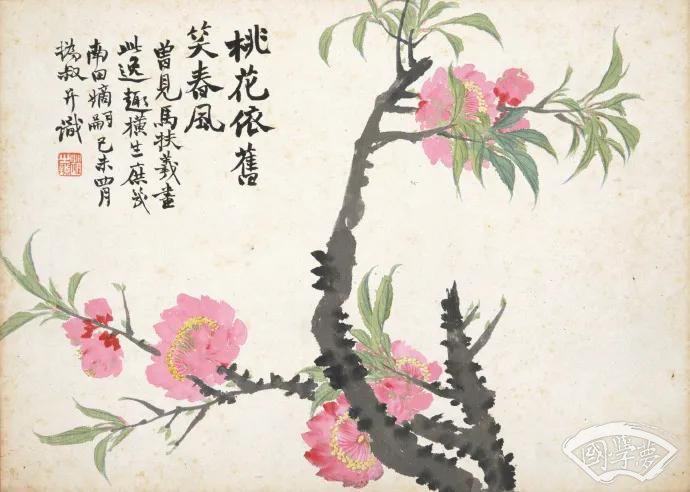 桃花依舊
笑春風
曾見馬扶羲畫
此逸趣橫生庶幾
南田嫡嗣己未四月
穉叔并識
國學夢